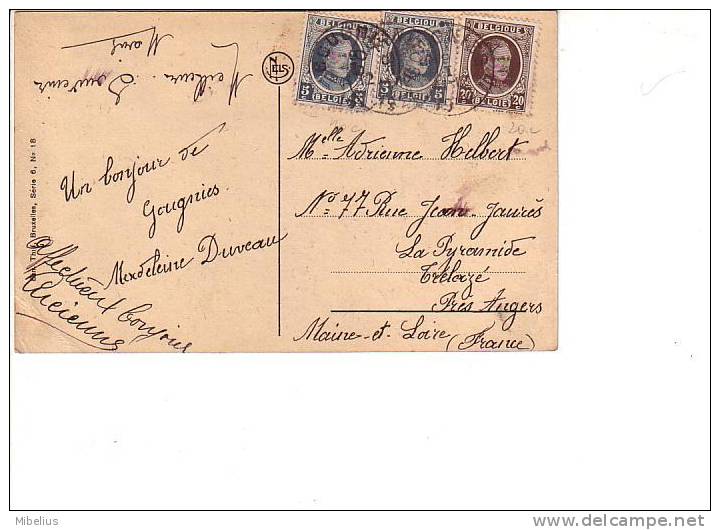 Meilleur Souvenir
NELS
BELGIQUE
5 BELGIË 5
BELGIQUE
5 BELGIË 5
BELGIQUE
20 BELGIË 20
20c
Un bonjour de
Gougnies.
Madeleine Duveau
Affectueux bonjour
Lucienne
Bruxelles, Série 6, No 18
Melle Adrienne Helbert
No 77 Rue Jean-Jaurès
La Pyramide
Trélazé
Près Angers
Maine-et-Loire (France)
Mibelius
delcampe.net